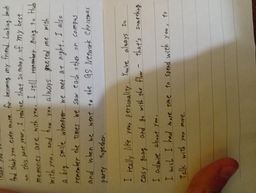 and thank you even more for becoming my friend. Looking back
this past year, I realize that so many of my best
memories are with you. I still remember going to Hub
with you, and how you always greeted me with
a big smile whenever we met at night. I also
remember the times we saw each other on campus
and when we went to the GS Network Christmas
party together.
I really like your personality. You're always so
easy going and go with the flow - that's something
I admire about you.
I wish I had more time to spend with you, to
talk with you more.